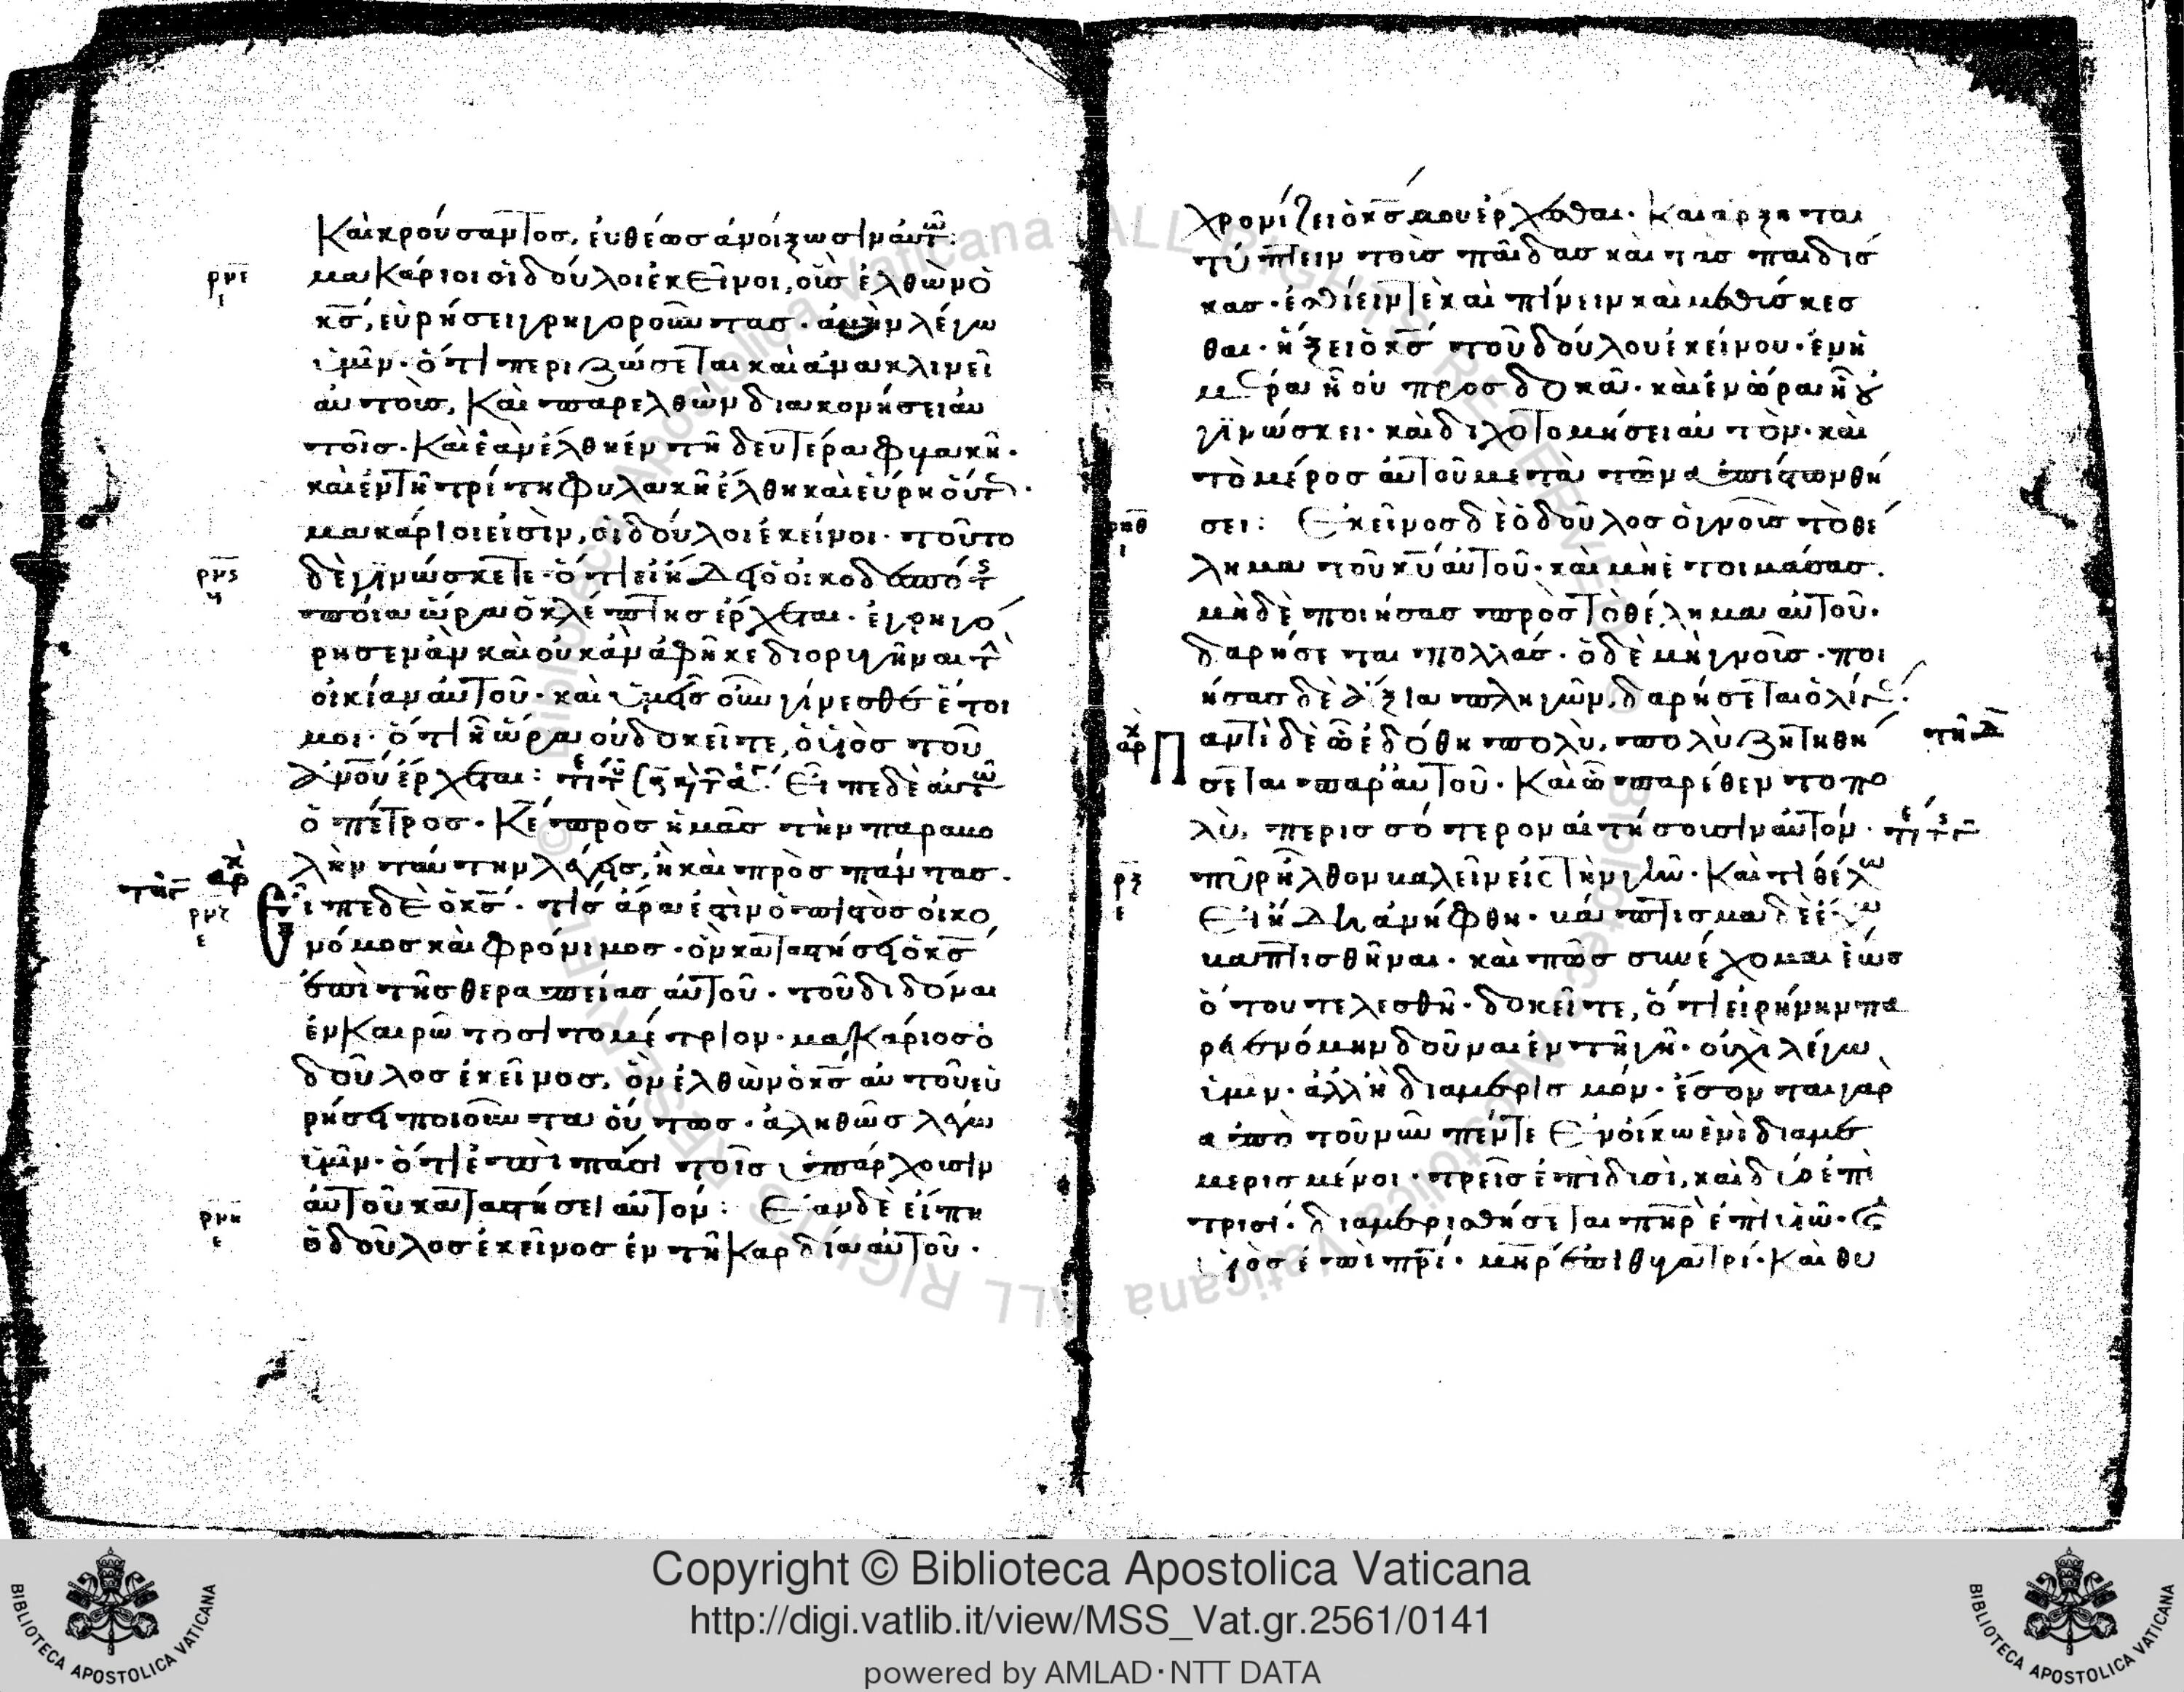 Καὶ κρούσαντος, εὐθέως ἀνοίξωσιν αὐτῶ:
μακάριοι οἱ δούλοι ἐκεῖνοι, οὓς ἐλθὼν ὁ
κ̅ς̅, εὑρήσει γρηγοροῦντας. ἀμὴν λέγω
ὑμῖν. ὅτι περιζώσεται καὶ ἀνακλινεῖ
αὐτοὺς, Καὶ παρελθὼν διακονήσει αὐ
τοῖς. Καὶ ἐὰν ἔλθη ἐν τῆ δευτέρα φυλακῆ.
καὶ ἐν τῆ τρίτη φυλακῆ ἔλθη καὶ εὕρη οὕτ
μακάριοι εἰσὶν, οἱ δούλοι ἐκείνοι. τοῦτο
δὲ γινώσκετε. ὅτι εἰ ἤδει ὁ οἰκοδεσπότ
ποία ὥρα ὁ κλέπτης ἔρχεται. ἐγρηγό
ρησεν ἂν καὶ οὐκ ἂν ἀφῆκε διορυγῆναι τ
οἰκίαν αὐτοῦ. καὶ ὑμεῖς οὖν γίνεσθε ἕτοι
μοι. ὅτι ἧ ὥρα οὐ δοκεῖτε, ὁ υἱὸς τοῦ
ἀνου ἔρχεται: Εἶπε δὲ αὐτῶ
ὁ πέτρος. Κε πρὸς ἡμᾶς τὴν παραβο
λὴν ταύτην λέγεις, ἢ καὶ πρὸς πάντας.
Εἶπε δὲ ὁ κ̅ς̅. τίς ἄρα ἐστὶν ὁ πιστὸς οἰκο
νόμος καὶ φρόνιμος. ὃν καταστήσει ὁ κ̅ς̅
ἐπὶ τῆς θεραπείας αὐτοῦ. τοῦ διδόναι
ἐν Καιρῶ τὸ σιτομέτριον. μακάριος ὁ
δοῦλος ἐκεῖνος, ὃν ἐλθὼν ὁ κ̅ς̅ αὐτοῦ εὑ
ρήσει ποιοῦντα οὕτως. ἀληθῶς λέγω
ὑμῖν. ὅτι ἐπὶ πάσι τοῖς ὑπάρχουσιν
αὐτοῦ καταστήσει αὐτόν: Ἐὰν δὲ εἴπη
ὁ δοῦλος ἐκεῖνος ἐν τῆ Καρδία αὐτοῦ.
χρονίζει ὁ κ̅ς̅ μου ἔρχεσθαι. Καὶ ἄρξηται
τύπτειν τοὺς παῖδας καὶ τὰς παιδίσ
κας. ἐσθίειν τὲ καὶ πίνειν καὶ μεθύσκεσ
θαι. ἥξει ὁ κ̅ς̅ τοῦ δούλου ἐκείνου. ἐν ἡ
μέρα ἧ οὐ προσδοκᾶ. καὶ ἐν ὥρα ἧ οὐ
γινώσκει. καὶ διχοτομήσει αὐτὸν. καὶ
τὸ μέρος αὐτοῦ μετὰ τῶν ἀπίστων θή
σει: Ἐκεῖνος δὲ ὁ δοῦλος ὁ γνοὺς τὸ θέ
λημα τοῦ κ̅υ̅ αὐτοῦ. καὶ μὴ ἑτοιμάσας.
μηδὲ ποιήσας πρὸς τὸ θέλημα αὐτοῦ.
δαρήσεται πολλάς. ὁ δὲ μὴ γνοὺς. ποι
ήσας δὲ ἄξια πληγῶν, δαρήσεται ὀλίγ
Παντὶ δὲ ὧ ἐδόθη πολὺ, πολὺ ζητηθή
σεται παρ' αὐτοῦ. Καὶ ὧ παρέθεντο πο
λὺ, περισσότερον αἰτήσουσιν αὐτόν.
πῦρ ἦλθον βαλεῖν εἰς τὴν γῆν. Καὶ τί θέλω
Εἰ ἤδη ἀνήφθη. βάπτισμα δὲ ἔχω
βαπτισθῆναι. καὶ πῶς συνέχομαι ἕως
ὅτου τελεσθῆ. δοκεῖτε, ὅτι εἰρήνην πα
ρεγενόμην δοῦναι ἐν τῆ γῆ. οὐχὶ λέγω
ὑμῖν. ἀλλ' ἢ διαμερισμόν. ἔσονται γὰρ
ἀπὸ τοῦ νῦν πέντε Ἐν οἴκω ἑνὶ διαμε
μερισμένοι. τρεῖς ἐπὶ δισὶ, καὶ δύο ἐπὶ
τρισί. διαμερισθήσεται πηρ ἐπὶ υἱῶ. καὶ
υἱὸς ἐπὶ πρι. μηρ ἐπὶ θυγατρί. Καὶ θυ
Copyright © Biblioteca Apostolica Vaticana
http://digi.vatlib.it/view/MSS_Vat.gr.2561/0141
powered by AMLAD·NTT DATA
BIBLIOTECA APOSTOLICA VATICANA
BIBLIOTECA APOSTOLICA VATICANA